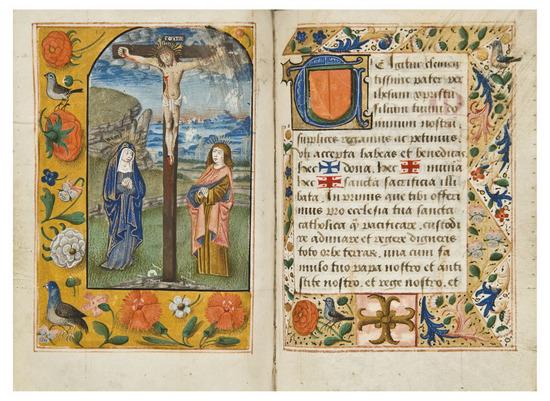 TE igitur clemen
tissime pater per
ihesum xpistu
filium tuum do
minum nostrum
supplices rogamus et petimus
uti accepta habeas et benedicas
hec dona, hec munera
hec sancta sacrificia illi
bata. In primis que tibi offeri
mus pro ecclesia tua sancta
catholica q pacificare, custodi
re adunare et regere digneris
toto orbe terrarum, una cum fa
mulo tuo papa nostro et anti
stite nostro, et rege nostro, et